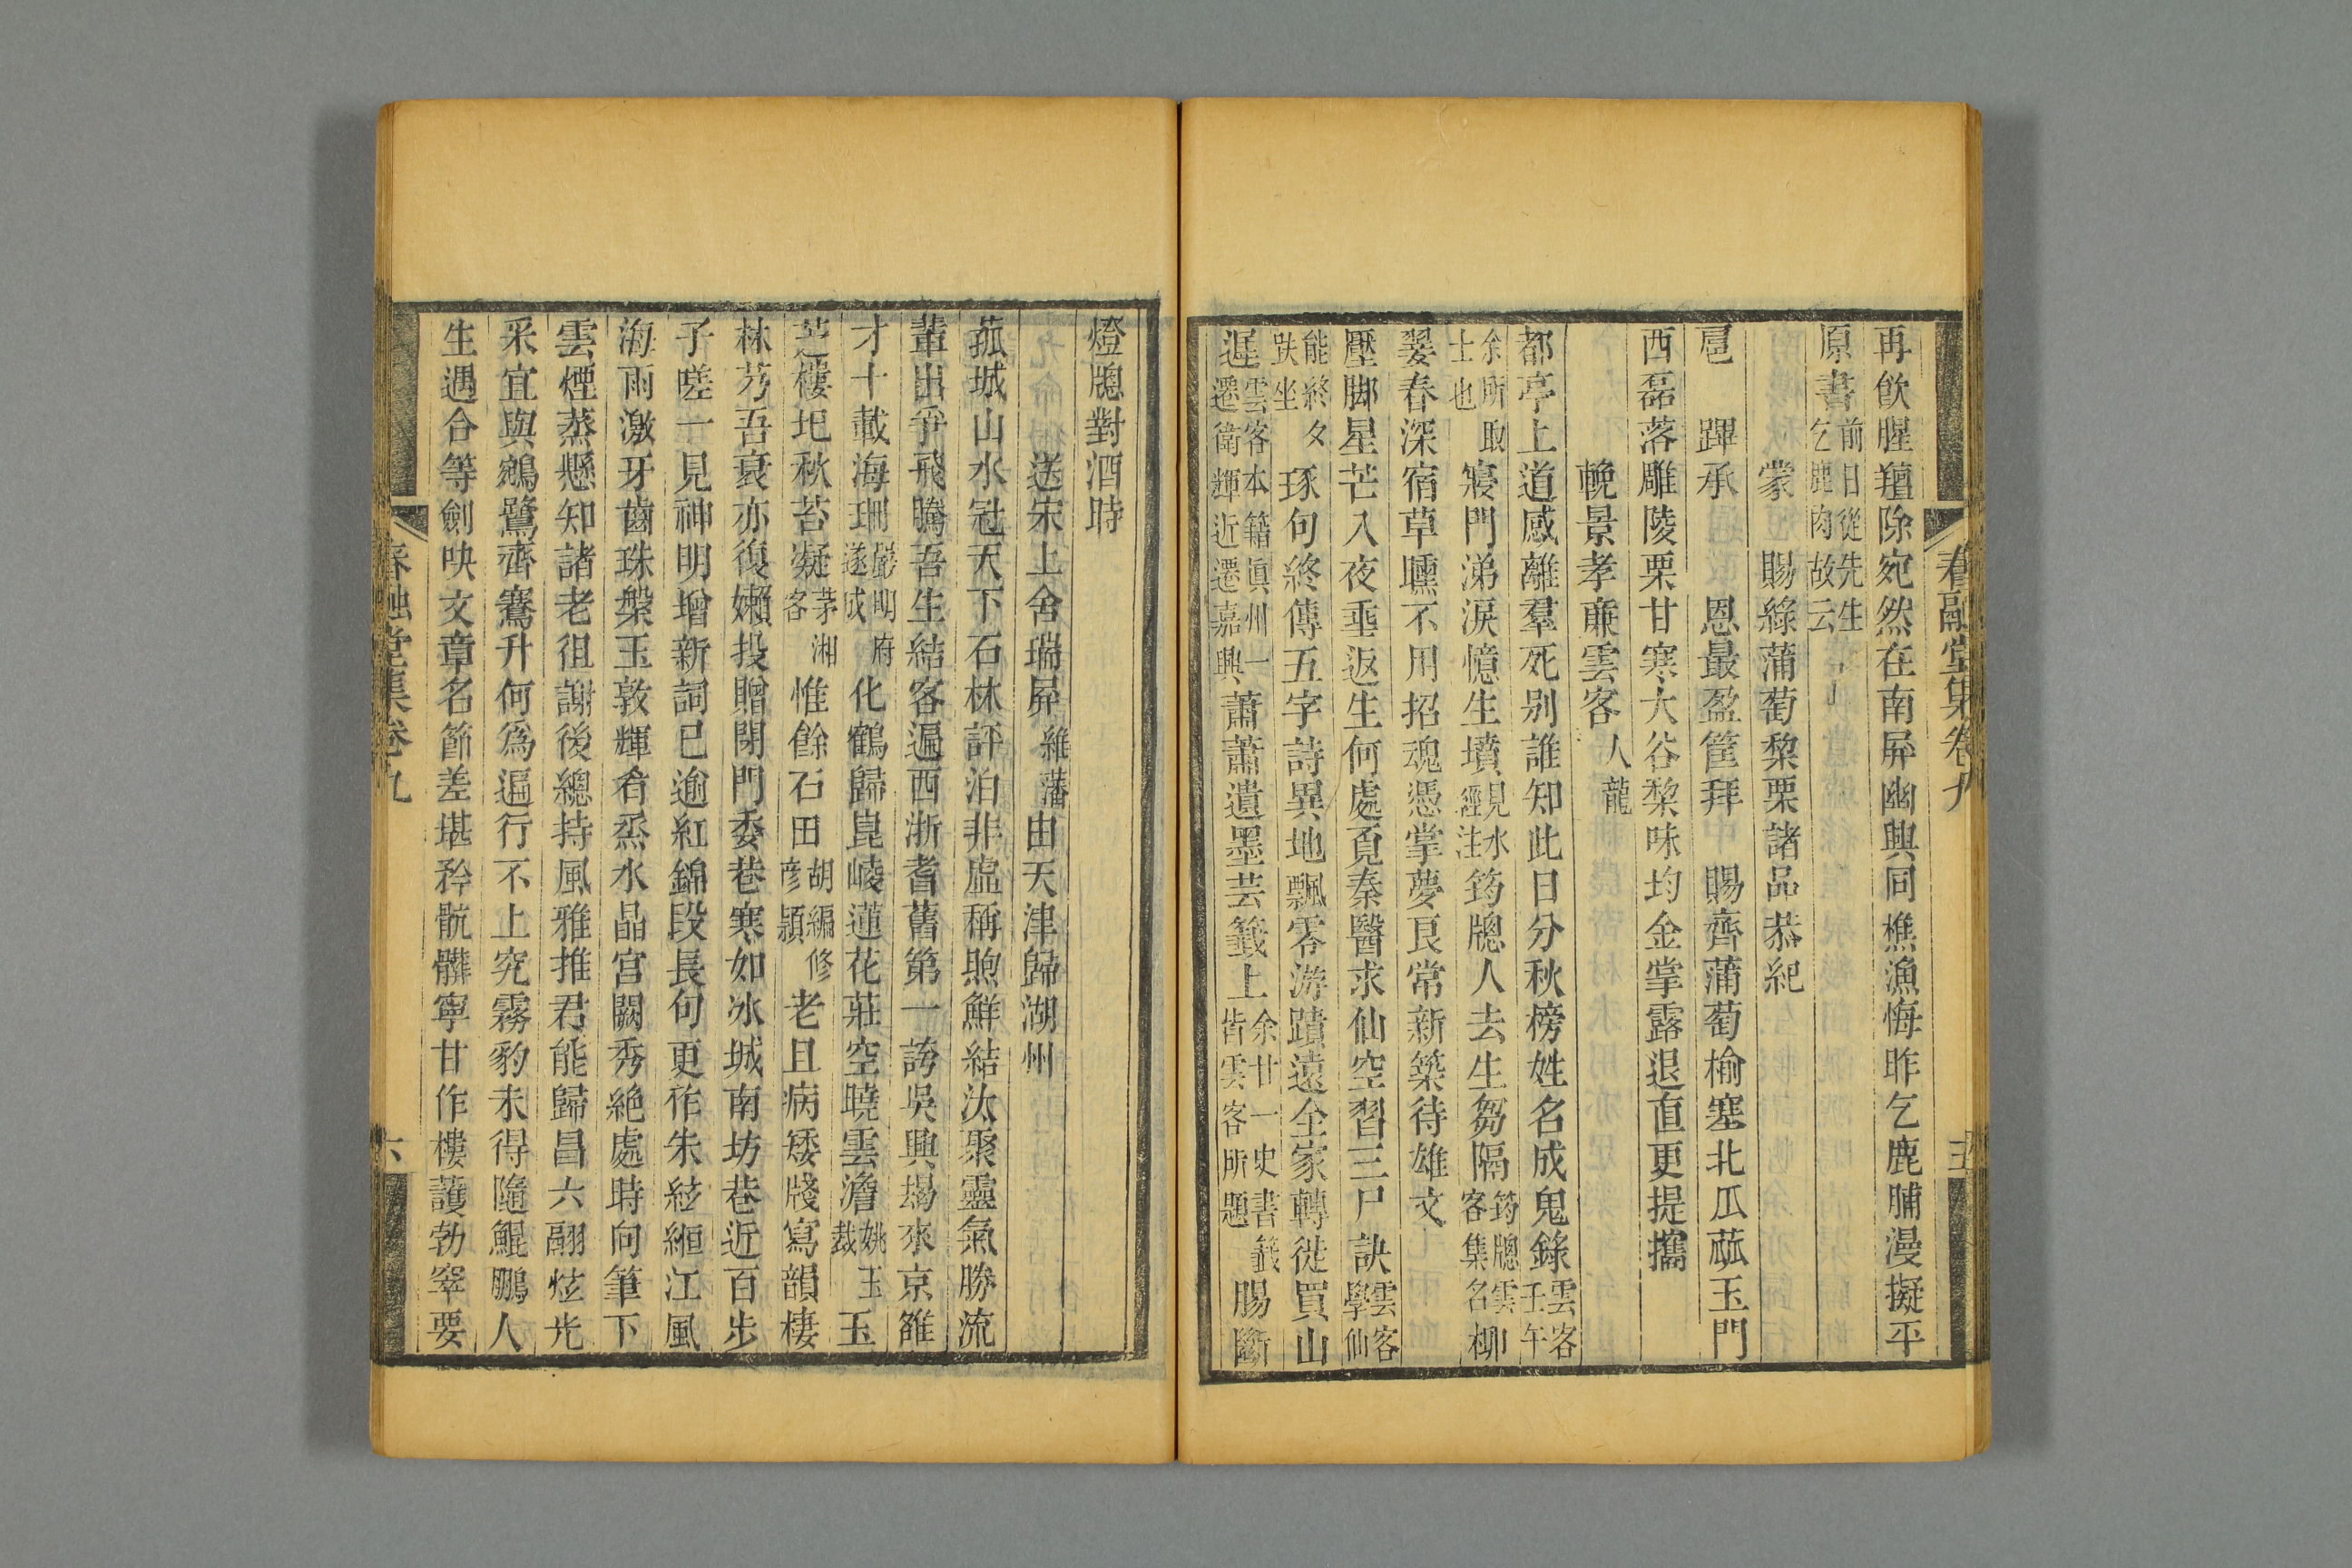 春融堂集卷九
再飲腥羶除宛然在南屏幽興同樵漁悔昨乞鹿脯漫擬平
原書前日從先生乞鹿肉故云
蒙賜綠蒲萄棃栗諸品恭紀
扈蹕承恩最盈筐拜賜齊蒲萄榆塞北瓜蓏玉門
西磊落雕陵栗甘寒大谷棃味均金掌露退直更提攜
輓景孝亷雲客人龍
都亭上道感離羣死別誰知此日分秋榜姓名成鬼錄雲客壬午
余所取士也寢門涕淚憶生墳見水經注筠牕人去生芻隔筠牕雲客集名柳
翣春深宿草曛不用招魂憑掌夢艮常新築待雄文
壓脚星芒入夜垂返生何處覓秦醫求仙空習三尸訣雲客學仙
能終夕趺坐琢句終傳五字詩異地飄零游蹟遠全家轉徙買山
遲雲客本籍滇州一遷衛輝近遷嘉興蕭蕭遺墨芸籤上余廿一史書籤皆雲客所題腸斷
燈牕對酒時
送宋上舍瑞屏維藩由天津歸湖州
菰城山水冠天下石林評泊非虛稱煦鮮結汰聚靈氣勝流
輩出爭飛騰吾生結客遍西浙耆舊第一誇吳興朅來京雒
才十載海珊嚴明府遂成化鶴歸崑崚蓮花莊空曉雲澹姚玉裁玉
芝樓圯秋苔凝茅湘客惟餘石田胡編修彦穎老且病矮牋寫韻棲
林艿吾衰亦復嬾投贈閉門委巷寒如冰城南坊巷近百步
子嗟一見神明增新詞已逾紅錦段長句更作朱絃緪江風
海雨激牙齒珠槃玉敦輝肴烝水晶宫闕秀絶處時向筆下
雲煙蒸懸知諸老徂謝後總持風雅推君能歸昌六翮炫光
釆宜與鵷鷺齊騫升何爲遍行不上究霧豹未得隨鯤鵬人
生遇合等劍吷文章名節差堪矜骯髒寧甘作樓護勃窣要
春融堂集卷九
六